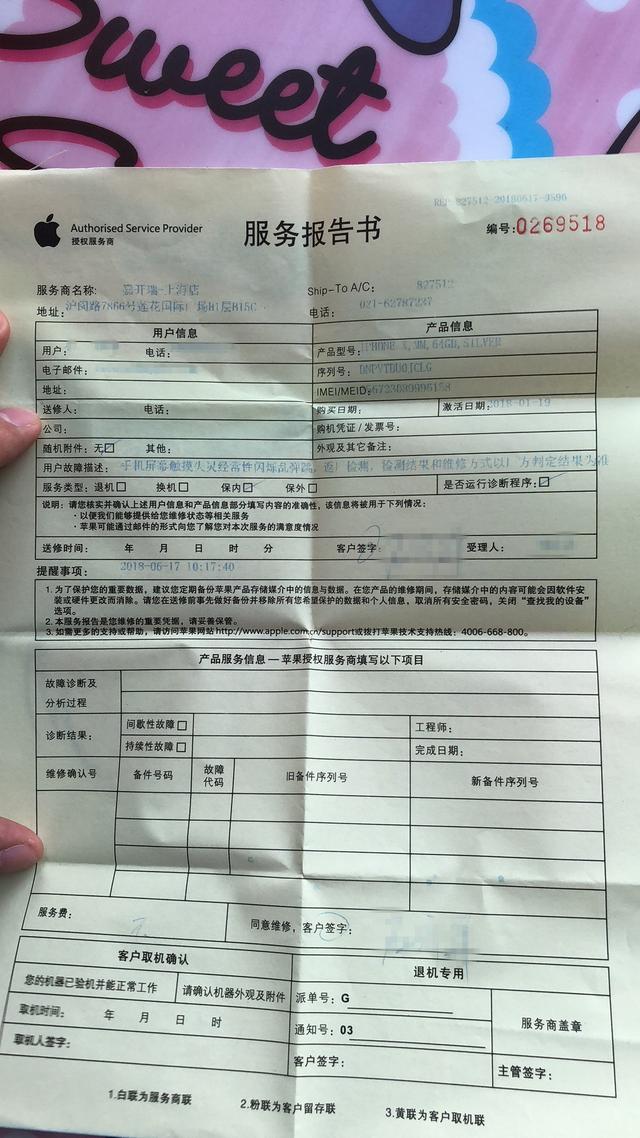 Sweet
REP 827512-20180617-9596
Authorised Service Provider
授权服务商
服务报告书
编号:0269518
服务商名称: 嘉开瑞-上海店 Ship-To A/C: 827512
地址: 沪闵路7866号莲花国际广场B1层B15C 电话: 021-62787237
用户信息 产品信息
用户: 电话: 产品型号: IPHONE X,3MM,64GB,SILVER
电子邮件: 序列号:
地址: IMEI/MEID:
送修人: 电话: 购买日期: 激活日期:2018-01-19
公司: 购机凭证/发票号:
随机附件: 无 其他: 外观及其它备注:
用户故障描述: 手机屏幕触摸失灵经常性闪烁乱弹跳,返厂检测,检测结果和维修方式以厂方判定结果为准
服务类型: 退机 换机 保内 保外 是否运行诊断程序:
说明: 请您核实并确认上述用户信息和产品信息部分填写内容的准确性,该信息将被用于下列情况:
· 以便我们能够提供给您维修状态等相关服务
· 苹果可能通过邮件的形式向您了解您对本次服务的满意度情况
送修时间: 年 月 日 时 分 客户签字: 受理人:
2018-06-17 10:17:40
提醒事项:
1. 为了保护您的重要数据,建议您定期备份苹果产品存储媒介中的信息与数据。在您产品的维修期间,存储媒介中的内容可能会因软件安
装或硬件更改而消除。请您在送修前事先做好备份并移除所有您希望保护的数据和个人信息,取消所有安全密码,关闭“查找我的设备”
选项。
2. 本服务报告是您维修的重要凭据,请妥善保管。
3. 如需更多的支持或帮助,请访问苹果网站http://www.apple.com.cn/support或拨打苹果技术支持热线: 4006-668-800。
产品服务信息—苹果授权服务商填写以下项目
故障诊断及
分析过程
诊断结果: 间歇性故障 工程师:
持续性故障 完成日期:
维修确认号 备件号码 故障代码 旧备件序列号 新备件序列号
服务费: 同意维修,客户签字:
客户取机确认 退机专用
您的机器已验机并能正常工作 请确认机器外观及附件 派单号: G
取机时间: 年 月 日 时 通知号: 03 服务商盖章
取机人签字: 客户签字: 主管签字:
1.白联为服务商联 2.粉联为客户留存联 3.黄联为客户取机联